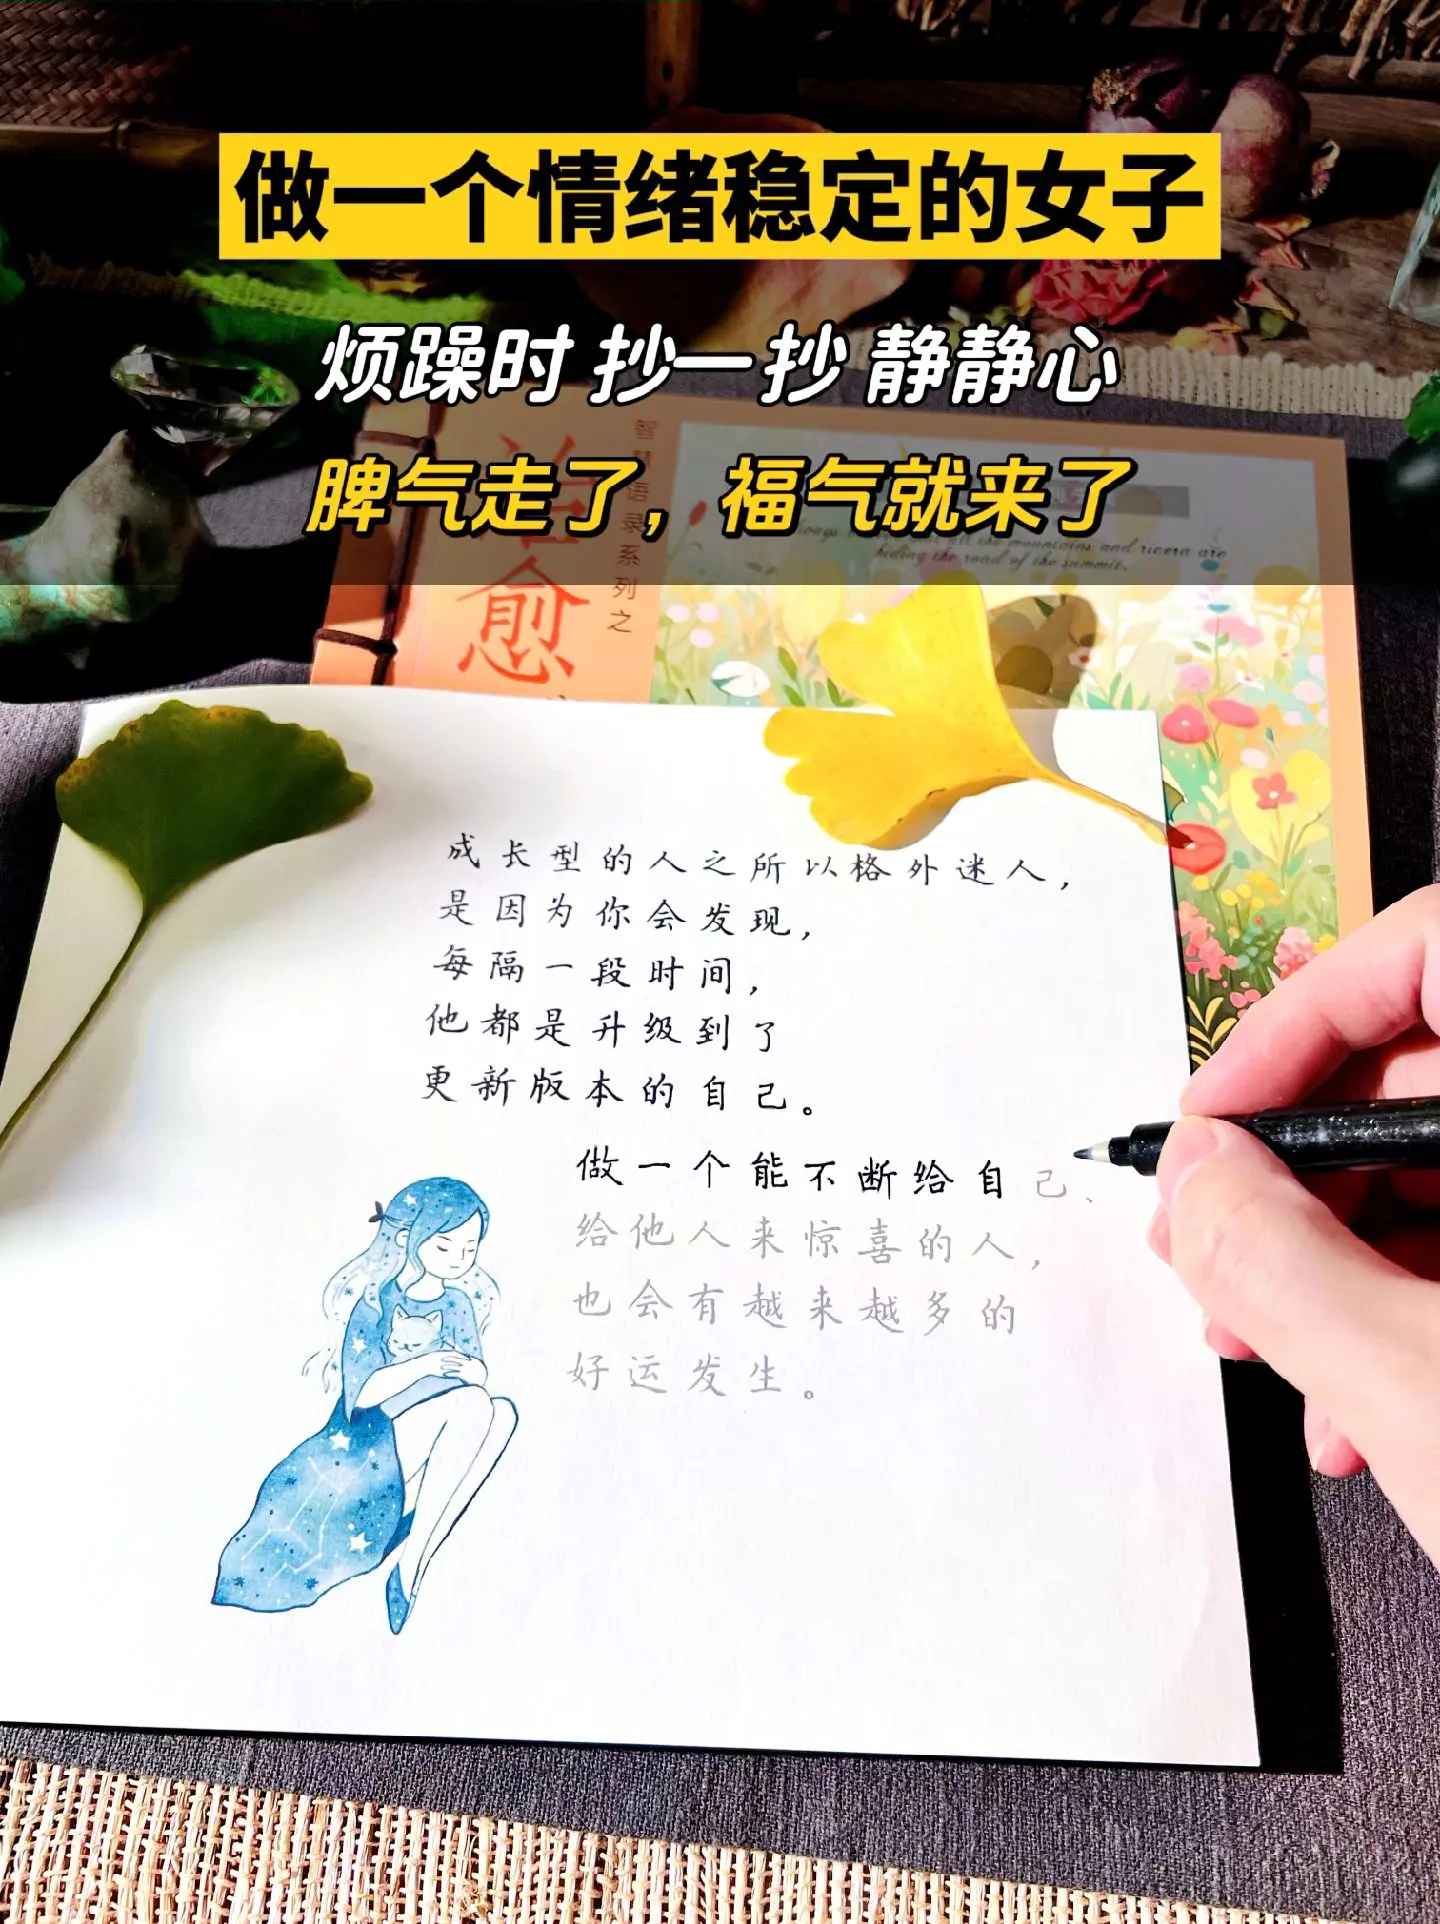 做一个情绪稳定的女子
烦躁时 抄一抄 静静心
脾气走了，福气就来了
智慧语录系列之
治愈
all the mountains and rivers are
hiding the road of the summit.
成长型的人之所以格外迷人，
是因为你会发现，
每隔一段时间，
他都是升级到了
更新版本的自己。
做一个能不断给自己、
给他人来惊喜的人，
也会有越来越多的
好运发生。